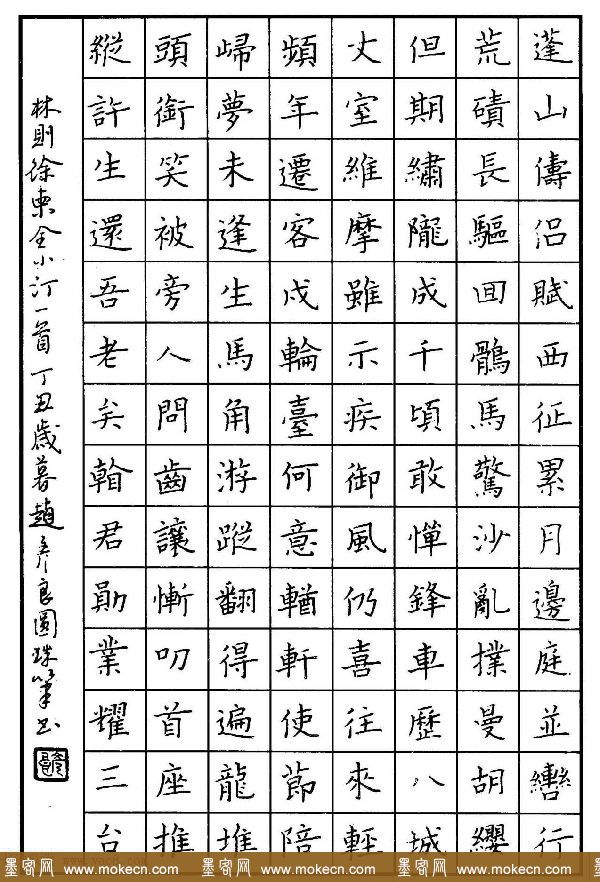 蓬山儔侣賦西征累月邊庭並轡行
荒磧長驅回鶻馬驚沙亂撲曼胡纓
但期繡隴成千頃敢憚鋒車歷八城
丈室維摩雖示疾御風仍喜往來輕
頻年遷客戍輪臺何意輶軒使節陪
歸夢未逢生馬角游蹤翻得遍龍堆
頭銜笑被旁人問齒讓慚叨首座推
縱許生還吾老矣翰君勛業耀三台
林則徐柬全小汀一首丁丑歲暮趙彦良圓珠筆书
墨客网 www.mokecn.com 墨客网 www.mokecn.com 墨客网 www.mokecn.com